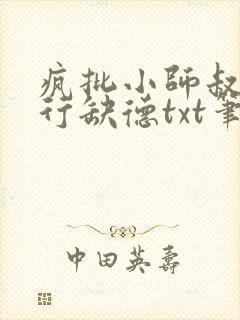 疯批小师叔
行缺德txt笔
中田英壽